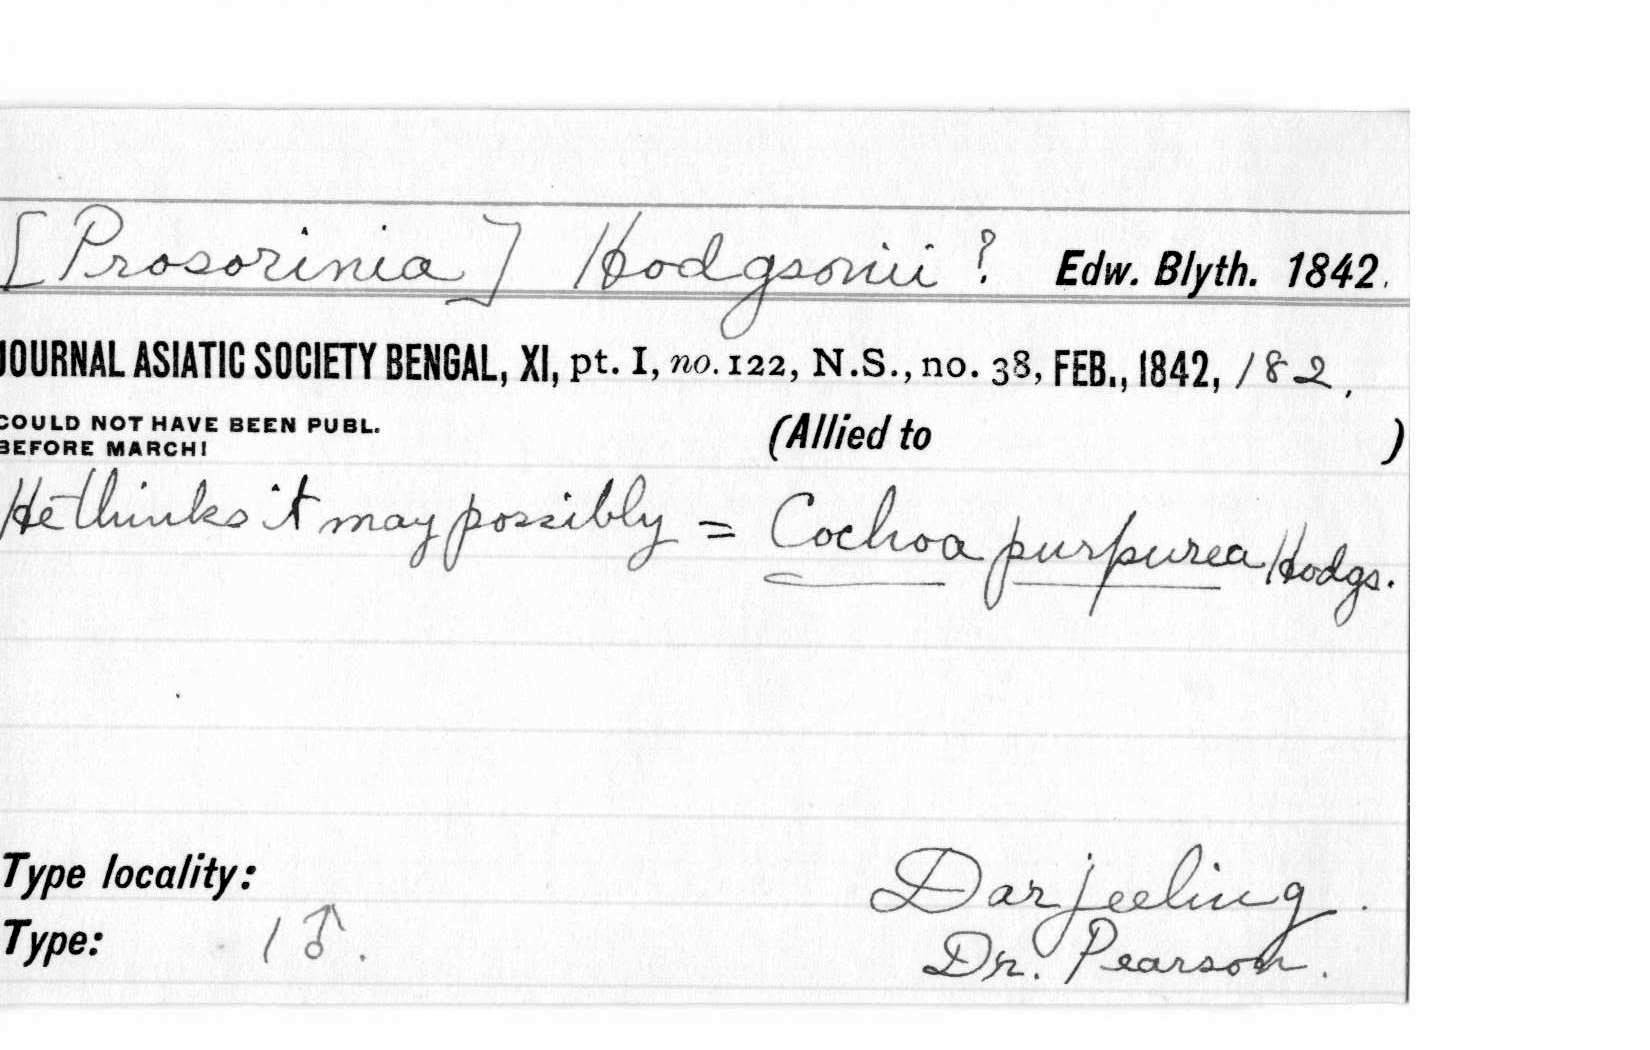 [Prosorinia] Hodgsonii? Edw. Blyth. 1842.
JOURNAL ASIATIC SOCIETY BENGAL, XI, pt. I, no. 122, N.S., no. 38, FEB., 1842, 182.
COULD NOT HAVE BEEN PUBL.
BEFORE MARCH!
(Allied to )
He thinks it may possibly = Cochoa purpurea Hodgs.
Type locality: Darjeeling.
Type: 1 ♂. Dr. Pearson.